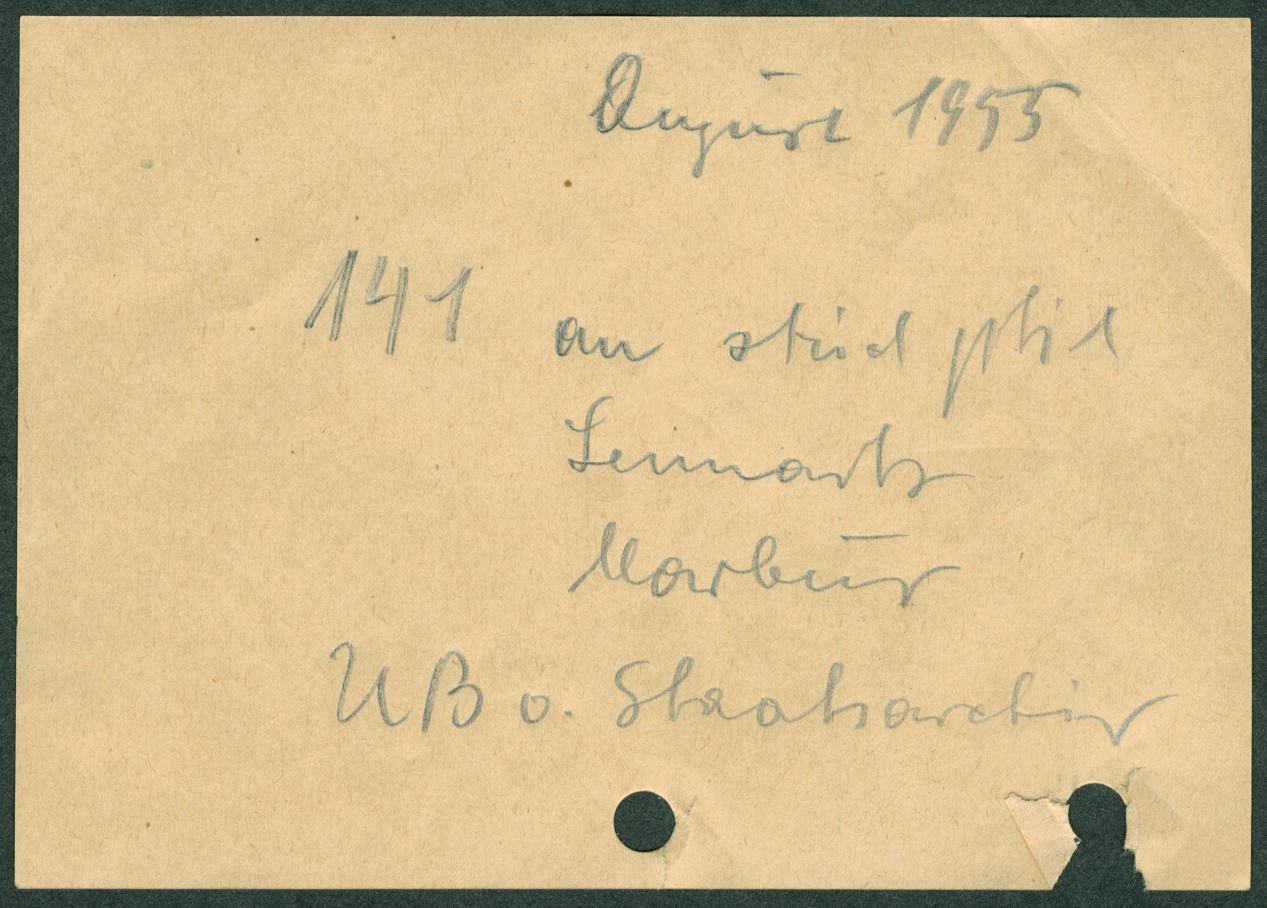 August 1955
141 an stud phil
Lennartz
Marburg
UB o. Staatsarchiv